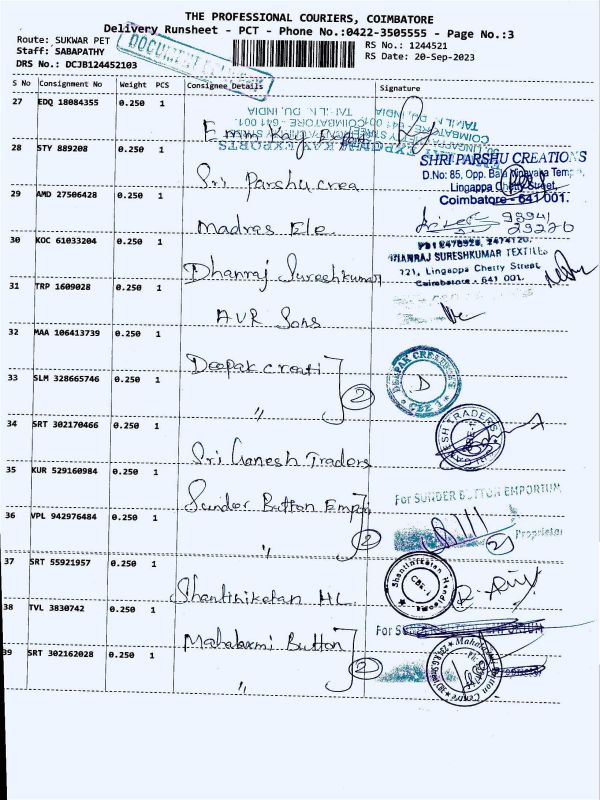 THE PROFESSIONAL COURIERS, COIMBATORE
Delivery Runsheet - PCT - Phone No.:0422-3505555 - Page No.:3
Route: SUKWAR PET
RS No.: 1244521
Staff: SABAPATHY
RS Date: 20-Sep-2023
DRS No.: DCJB124452103
DOCUMENT
S No Consignment No Weight PCS Consignee Details Signature
27 EDQ 18084355 0.250 1
28 STY 889208 0.250 1
SHRI PARSHU CREATIONS
D.No: 85, Opp. Bala Vinayaga Temple,
Lingappa Chetty Street,
Coimbatore - 641 001.
Sri Parshu crea
29 AMD 27506428 0.250 1
Madras Ele.
30 KOC 61033204 0.250 1
DHANRAJ SURESHKUMAR TEXTILES
721, Lingappa Chetty Street
Coimbatore - 641 001.
Dhanraj Sureshkumar
31 TRP 1609028 0.250 1
AVR Sons
32 MAA 106413739 0.250 1
Deepak creati
DEEPAK CREATIONS
D
CBE 1
33 SLM 328665746 0.250 1
" 2
34 SRT 302170466 0.250 1
TRADERS
Sri Ganesh Traders
35 KUR 529160984 0.250 1
Sunder Button Emp
For SUNDER BUTTON EMPORIUM
36 VPL 942976484 0.250 1
" 2
2
Proprietor
37 SRT 55921957 0.250 1
Shantiniketan
CBE-1
Shantiniketan HL
38 TVL 3830742 0.250 1
Mahalaxmi Button
For SUNDER BUTTON EMPORIUM
39 SRT 302162028 0.250 1
" 2
Mahalaxmi Button Centre